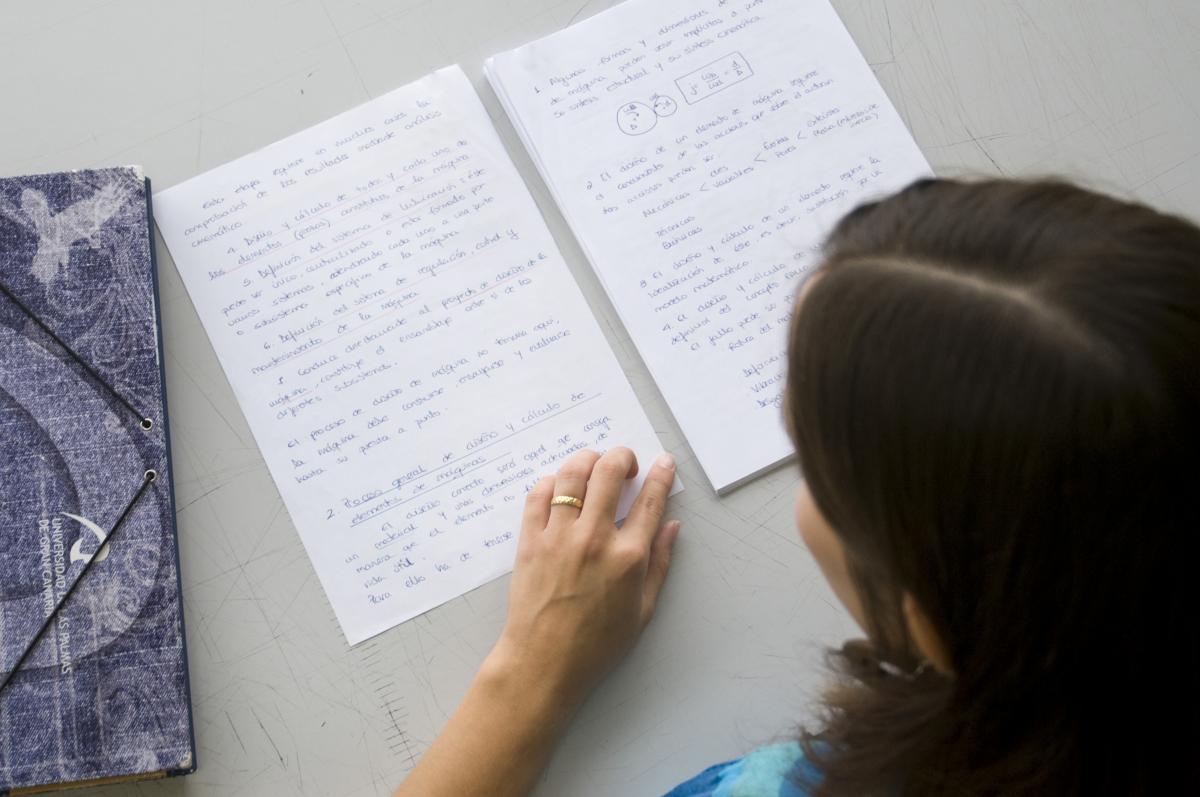 Esta etapa requiere en muchos casos la
comprobación de los resultados mediante análisis
cinemático
4. Diseño y cálculo de todos y cada uno de
los elementos (piezas) constitutivos de la máquina
5. Definición del sistema de lubricación: éste
puede ser único, centralizado o estar formado por
varios sistemas, atendiendo cada uno a una parte
o subsistema específico de la máquina
6. Definición del sistema de regulación, control y
mantenimiento de la máquina
1. Conduce directamente al proyecto de diseño de la
máquina, constituye el ensamblaje entre sí de los
diferentes subsistemas.
El proceso de diseño de máquina no termina aquí,
la máquina debe construirse, ensayarse y evaluarse
hasta su puesta a punto.
2. Proceso general de diseño y cálculo de
elementos de máquinas
El diseño correcto será aquel que consiga
un material y unas dimensiones adecuadas, de
manera que el elemento no
vida útil.
Para ello ha de tenerse
1. Algunas formas y dimensiones de
de máquina pueden venir implícitas a partir
su síntesis estructural y su síntesis cinemática.
2. El diseño de un elemento de máquina requiere
el conocimiento de las acciones que sobre él actúan
Estas acciones pueden ser:
Mecánicas < Variables < Fuerzas
Térmicas
Químicas
3. El diseño y cálculo de un elemento requiere la
idealización de éste, es decir, sustituirlo por un
modelo matemático
4. El diseño y cálculo de
definición del concepto
El fallo puede ser
Rotura del
UNIVERSIDAD DE LAS PALMAS
DE GRAN CANARIA